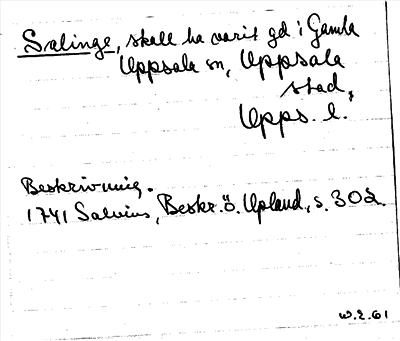 Salinge, skall ha varit gd i Gamla
Uppsala sn, Uppsala
stad,
Upps. l.
Beskrivning.
1741 Salvius, Beskr. ö. Upland, s. 302.
W.E. 61